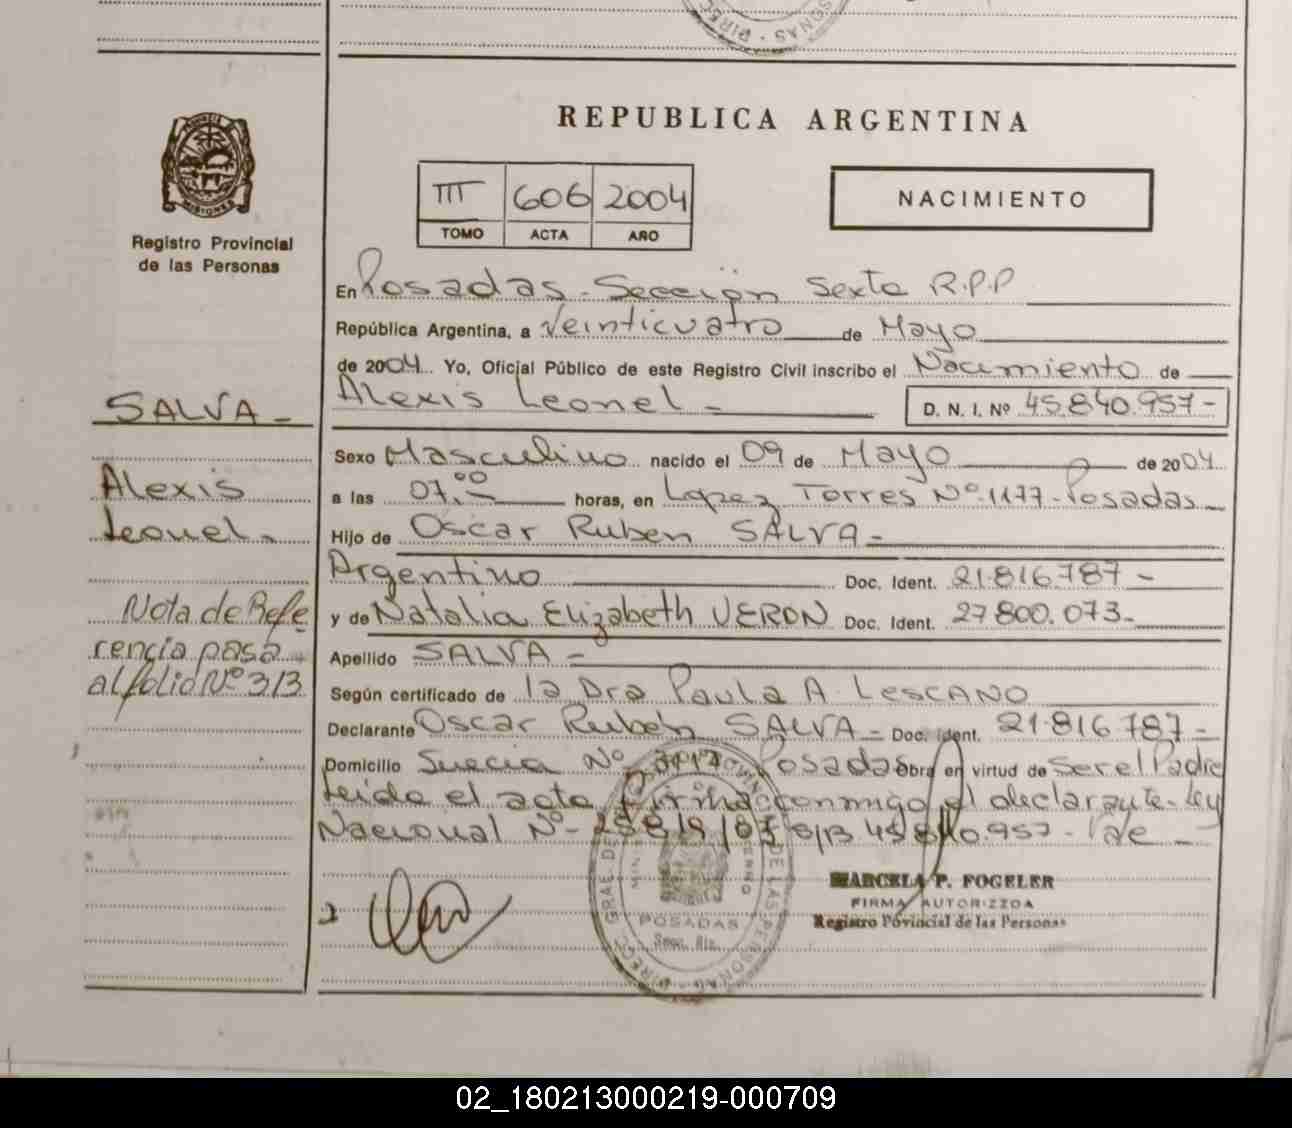 REPUBLICA ARGENTINA
MISIONES
Registro Provincial
de las Personas
III 606 2004
TOMO ACTA AÑO
NACIMIENTO
En Posadas - Sección Sexta R.P.P
República Argentina, a Veinticuatro de Mayo
de 2004. Yo, Oficial Público de este Registro Civil inscribo el Nacimiento de
Alexis Leonel - D. N. I. Nº 45.840.957-
Sexo Masculino nacido el 09 de Mayo de 2004
a las 07.00 horas, en Lopez Torres Nº 1177 - Posadas
Hijo de Oscar Ruben SALVA -
Argentino Doc. Ident. 21.816.787 -
y de Natalia Elizabeth VERON Doc. Ident. 27.800.073-
Apellido SALVA -
Según certificado de la Dra Paula A. LESCANO
Declarante Oscar Ruben SALVA - Doc. Ident. 21.816.787 -
Domicilio Suecia Nº Posadas Obra en virtud de Ser el Padre
Leida el acta firma conmigo el declarante - Ley
Nacional Nº- 25819/03 S/B 45.840.957 - Vale -
SALVA -
Alexis
Leonel -
Nota de Refe
rencia pasa
al folio Nº 313
MARCELA P. FOGELER
FIRMA AUTORIZZDA
Registro Povincial de las Personas
POSADAS
02_180213000219-000709